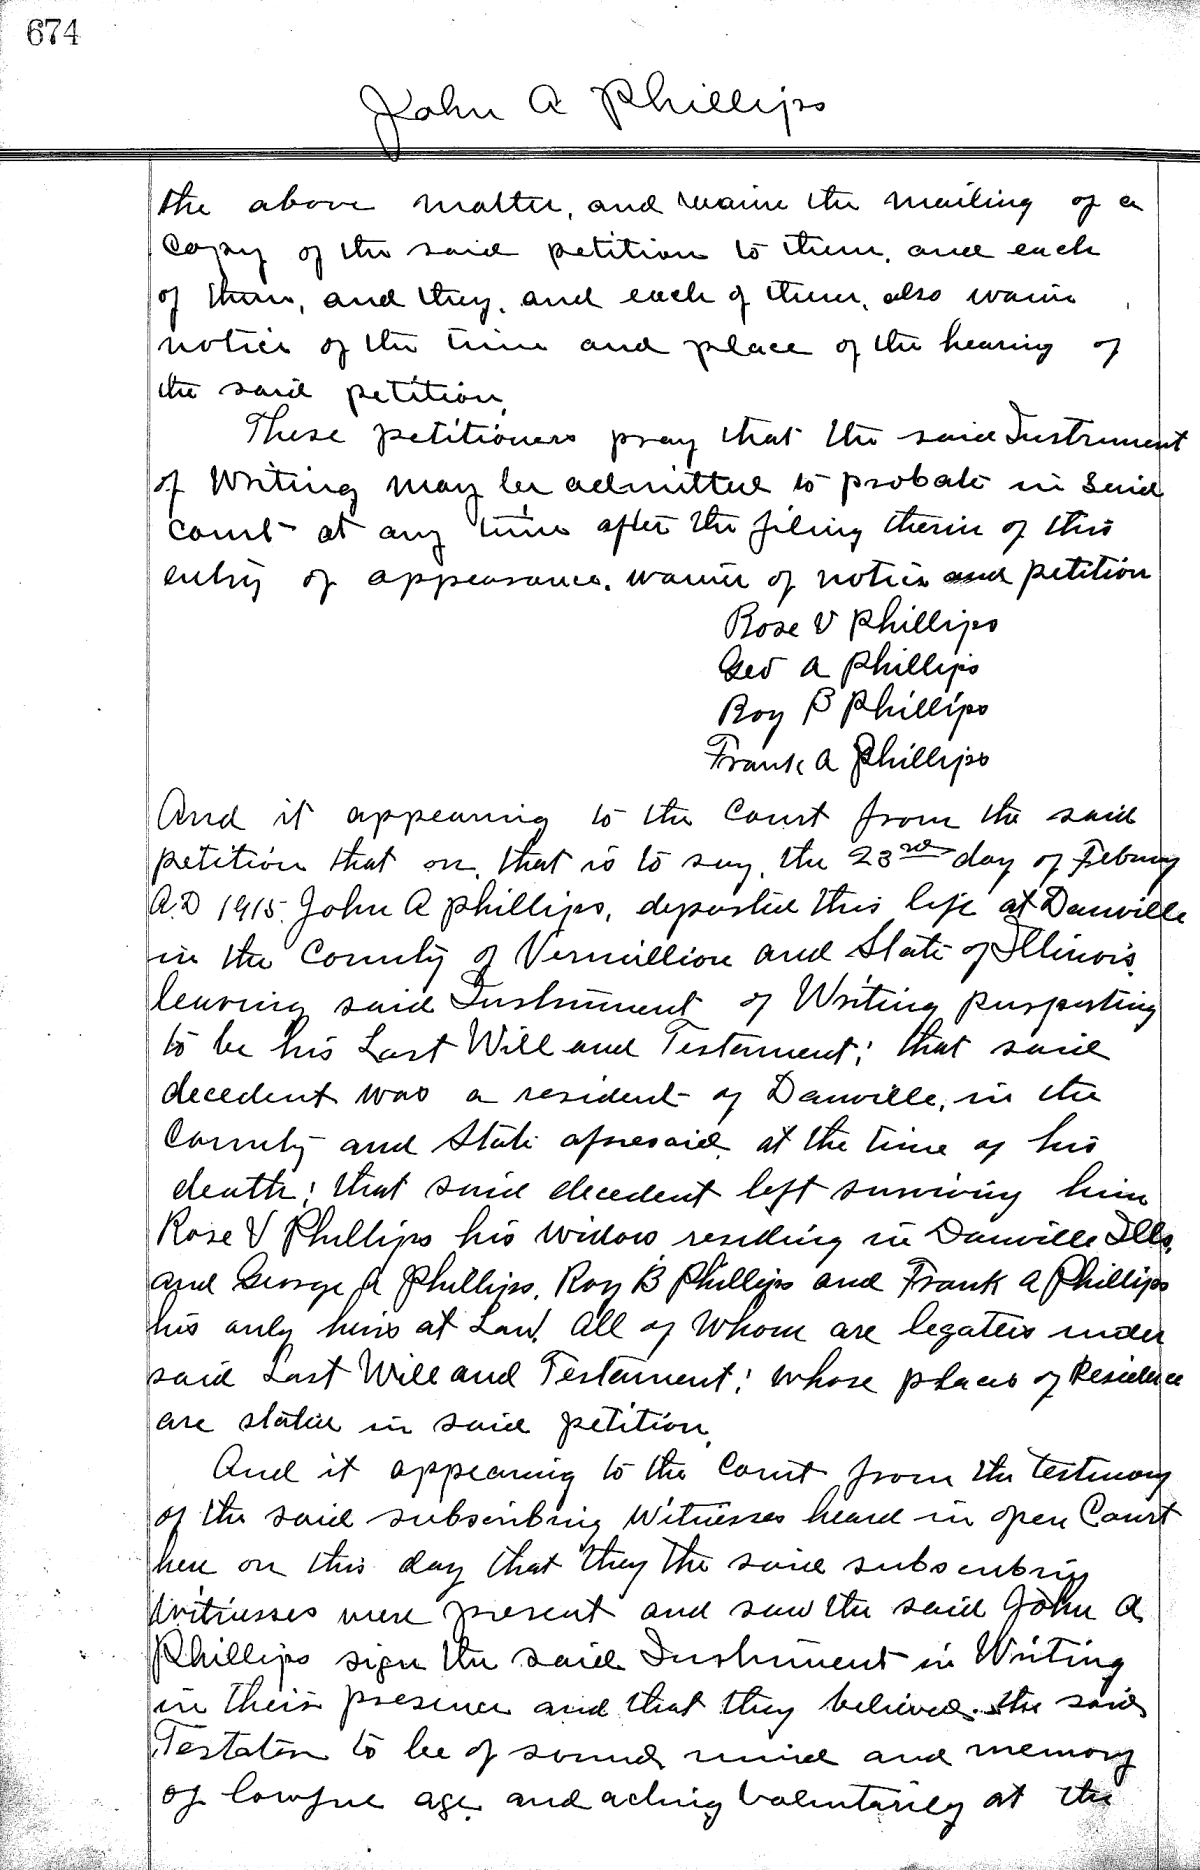 674
John A Phillips
the above matter, and waive the mailing of a
Copy of the said petition to them, and each
of them, and they, and each of them, also waive
notice of the time and place of the hearing of
the said petition.
These petitioners pray that the said Instrument
of Writing may be admitted to probate in said
court at any time after the filing therin of this
entry of appearance, waiver of notice and petition
Rose V Phillips
Geo A Phillips
Roy B Phillips
Frank A Phillips
And it appearing to the Court from the said
petition that on, that is to say, the 23rd day of Febuary
A.D 1915. John A Phillips, departed this life at Danville
in the County of Vermillion and State of Illinois,
leaving said Instrument of Writing purporting
to be his Last Will and Testament; that said
decedent was a resident of Danville, in the
County and State aforesaid, at the time of his
death; that said decedent left surviving him
Rose V Phillips his widow residing in Danville Ills,
and George A Phillips, Roy B Phillips and Frank A Phillips
his only heirs at Law! All of Whom are legatees under
said Last Will and Testament; whose places of Residence
are stated in said petition.
And it appearing to the Court from the testimony
of the said subscribing Witnesses heard in open Court
here on this day that they the said subscribing
Witnesses were present and saw the said John A
Phillips sign the said Instrument in Writing
in their presence and that they believed the said
Testator to be of sound mind and memory
of lawful age and acting voluntarily at the